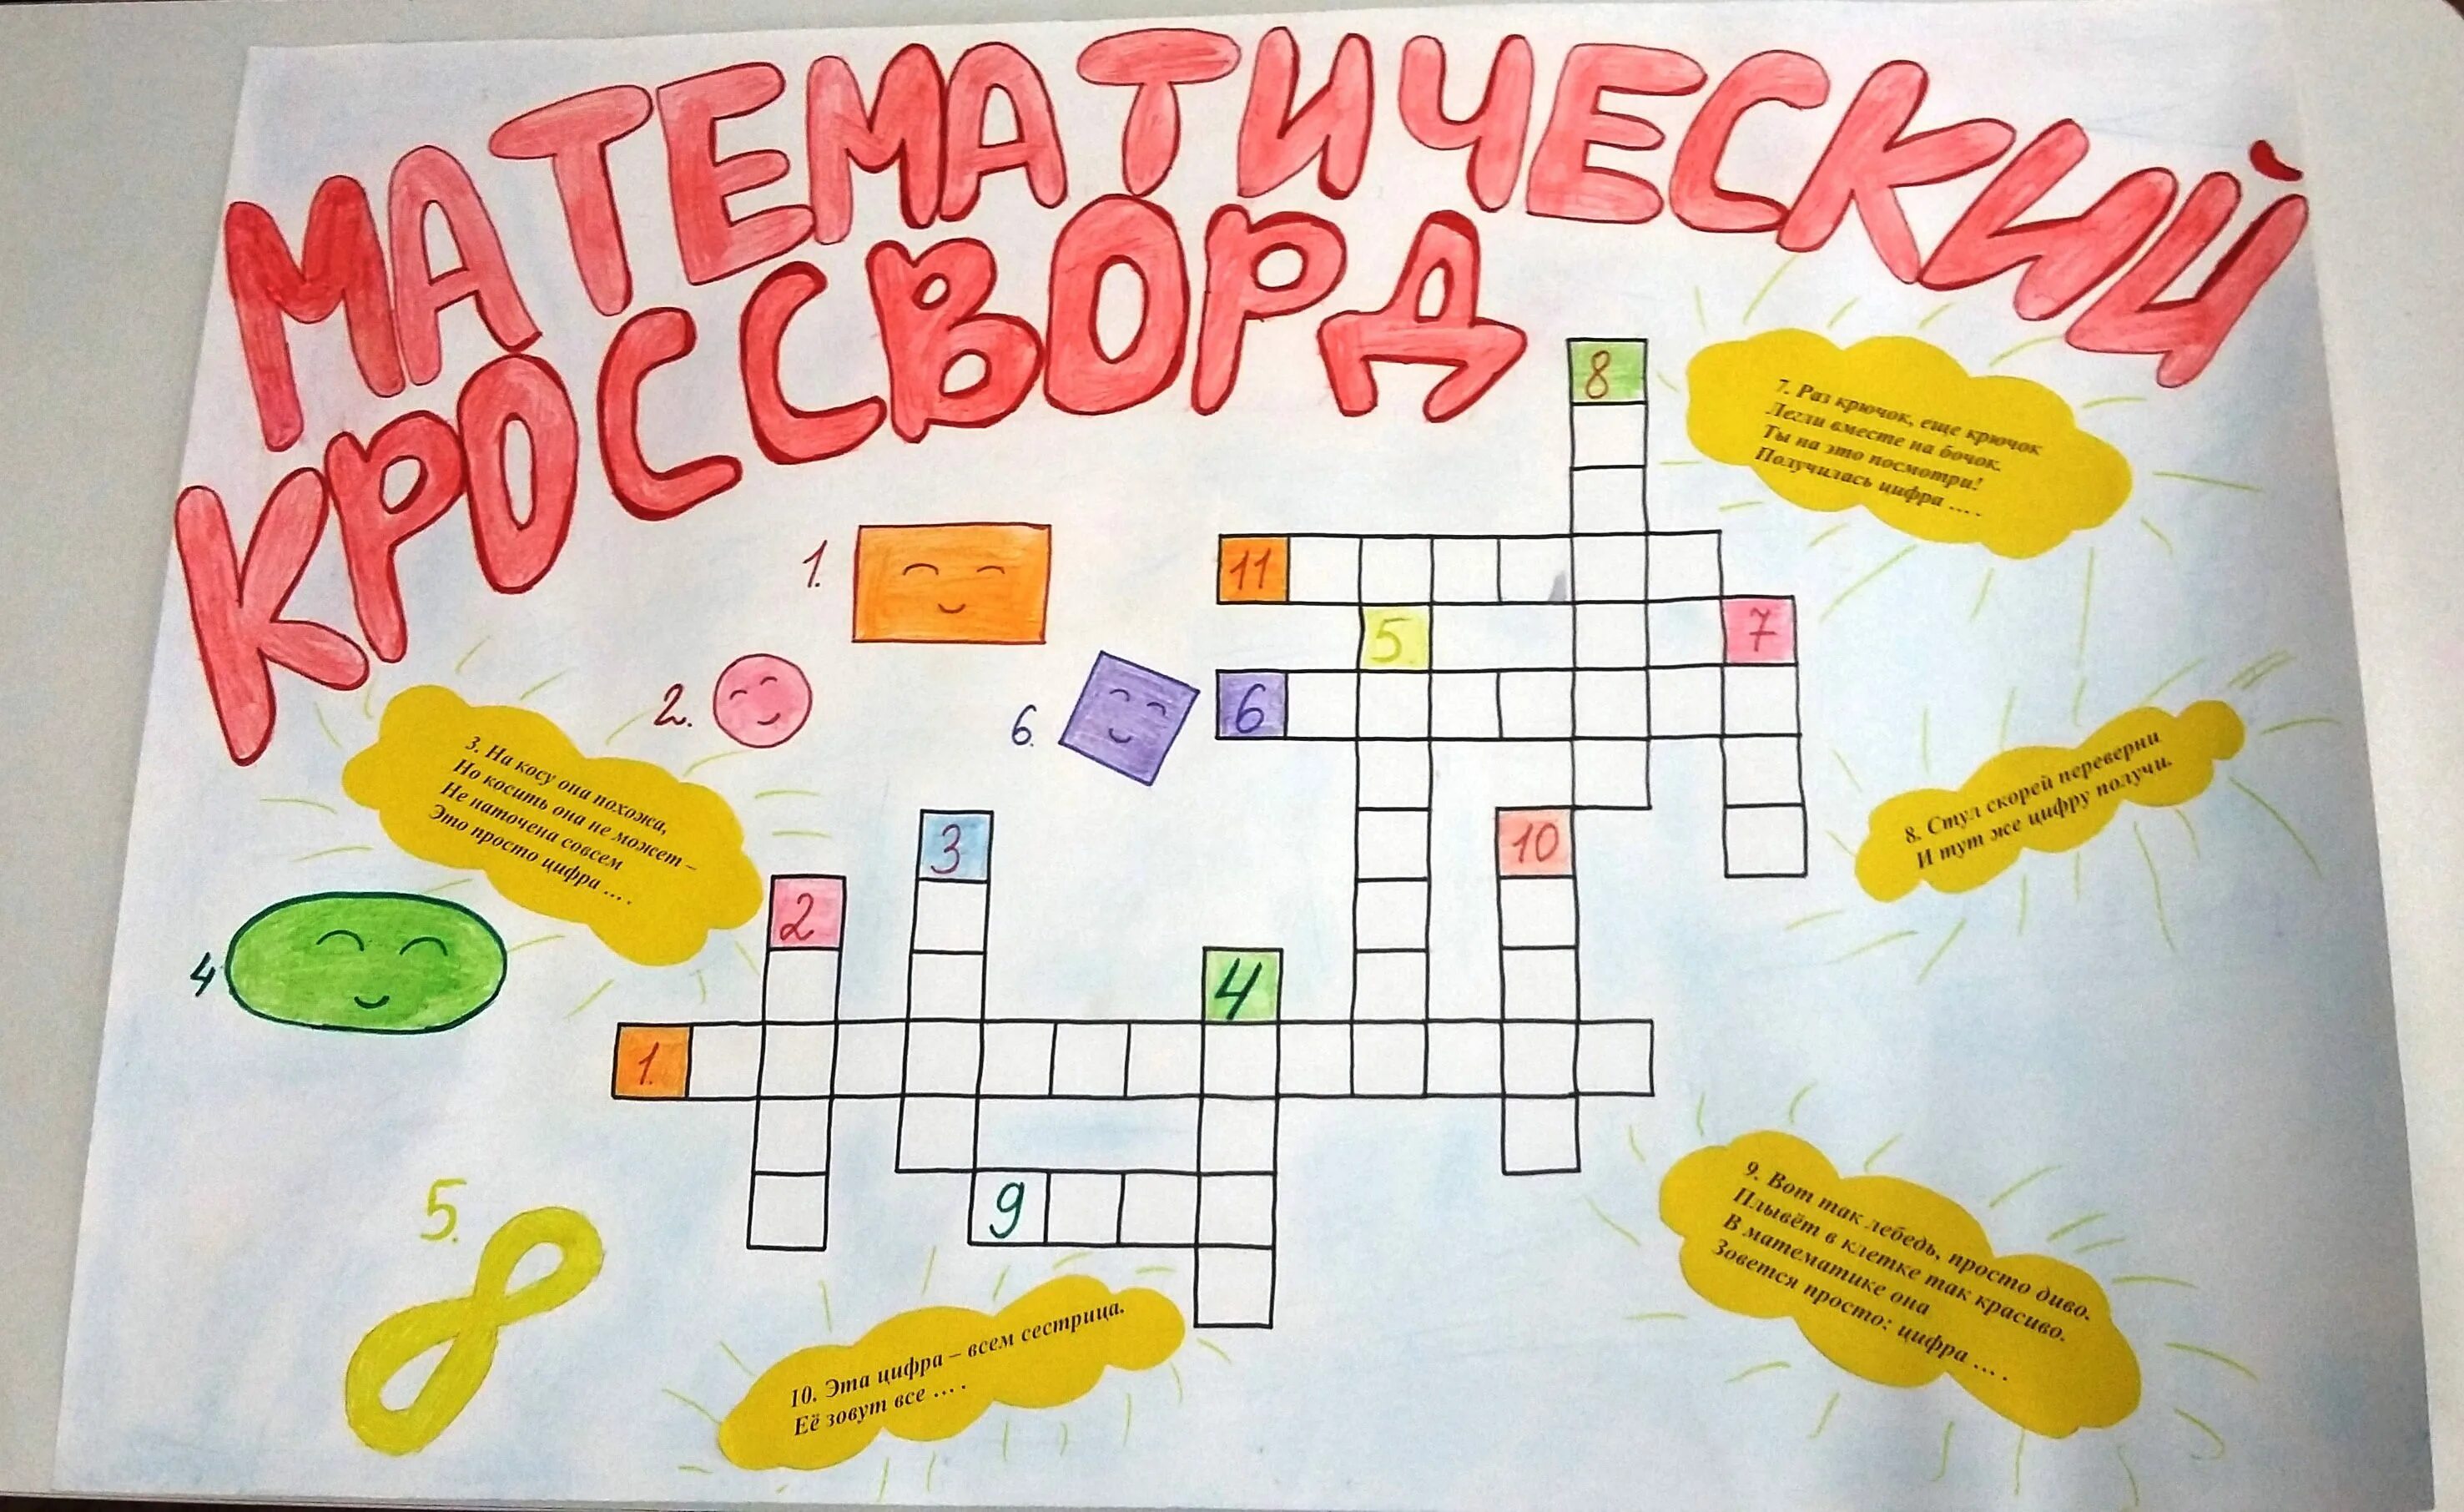 МАТЕМАТИЧЕСКИЙ
КРОССВОРД
8
7. Раз крючок, еще крючок
Легли вместе на бочок.
Ты на это посмотри!
Получилась цифра ... .
1.
11
5.
7
2.
6.
6
3. На косу она похожа,
Но косить она не может –
Не наточена совсем
Это просто цифра ... .
8. Стул скорей переверни
И тут же цифру получи.
3
10
2
4
4
1.
9
5.
9. Вот так лебедь, просто диво.
Плывёт в клетке так красиво.
В математике она
Зовется просто: цифра ... .
10. Эта цифра – всем сестрица.
Её зовут все ... .